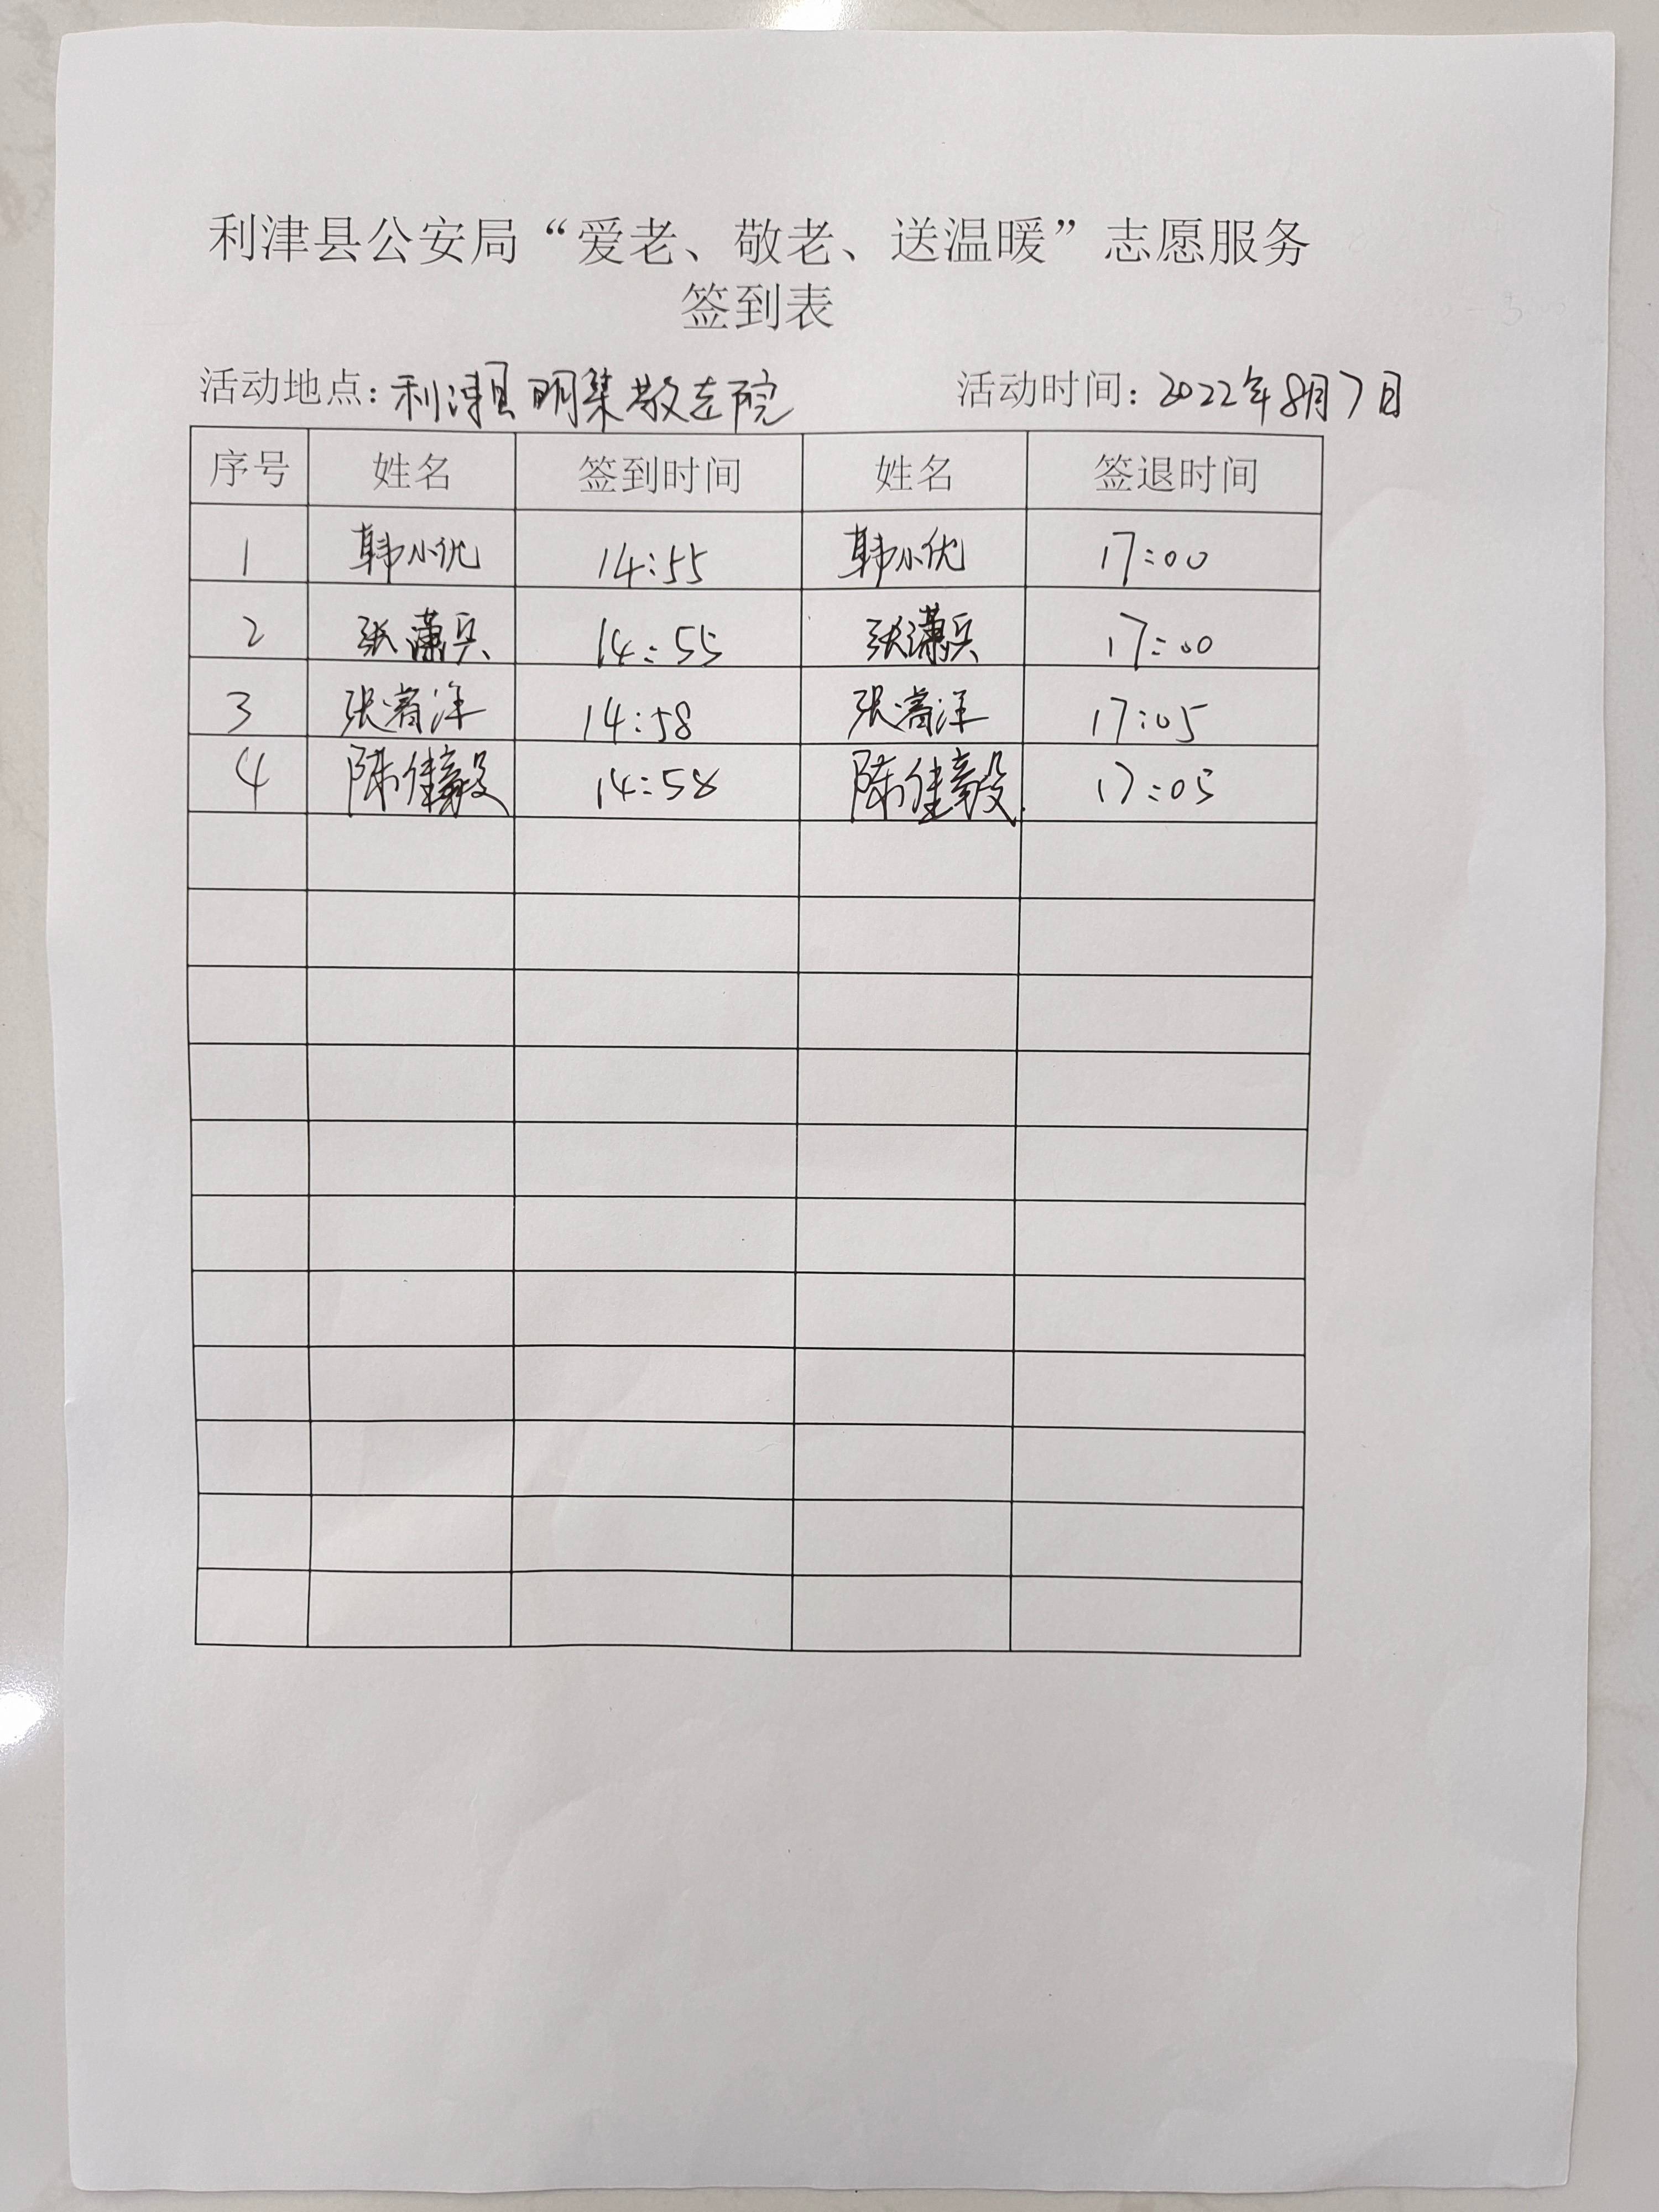 利津县公安局“爱老、敬老、送温暖”志愿服务
签到表
活动地点：利津县明集敬老院 活动时间：2022年8月7日
序号 姓名 签到时间 姓名 签退时间
1 韩小优 14:55 韩小优 17:00
2 张潇兵 14:55 张潇兵 17:00
3 张睿洋 14:58 张睿洋 17:05
4 陈佳毅 14:58 陈佳毅 17:05